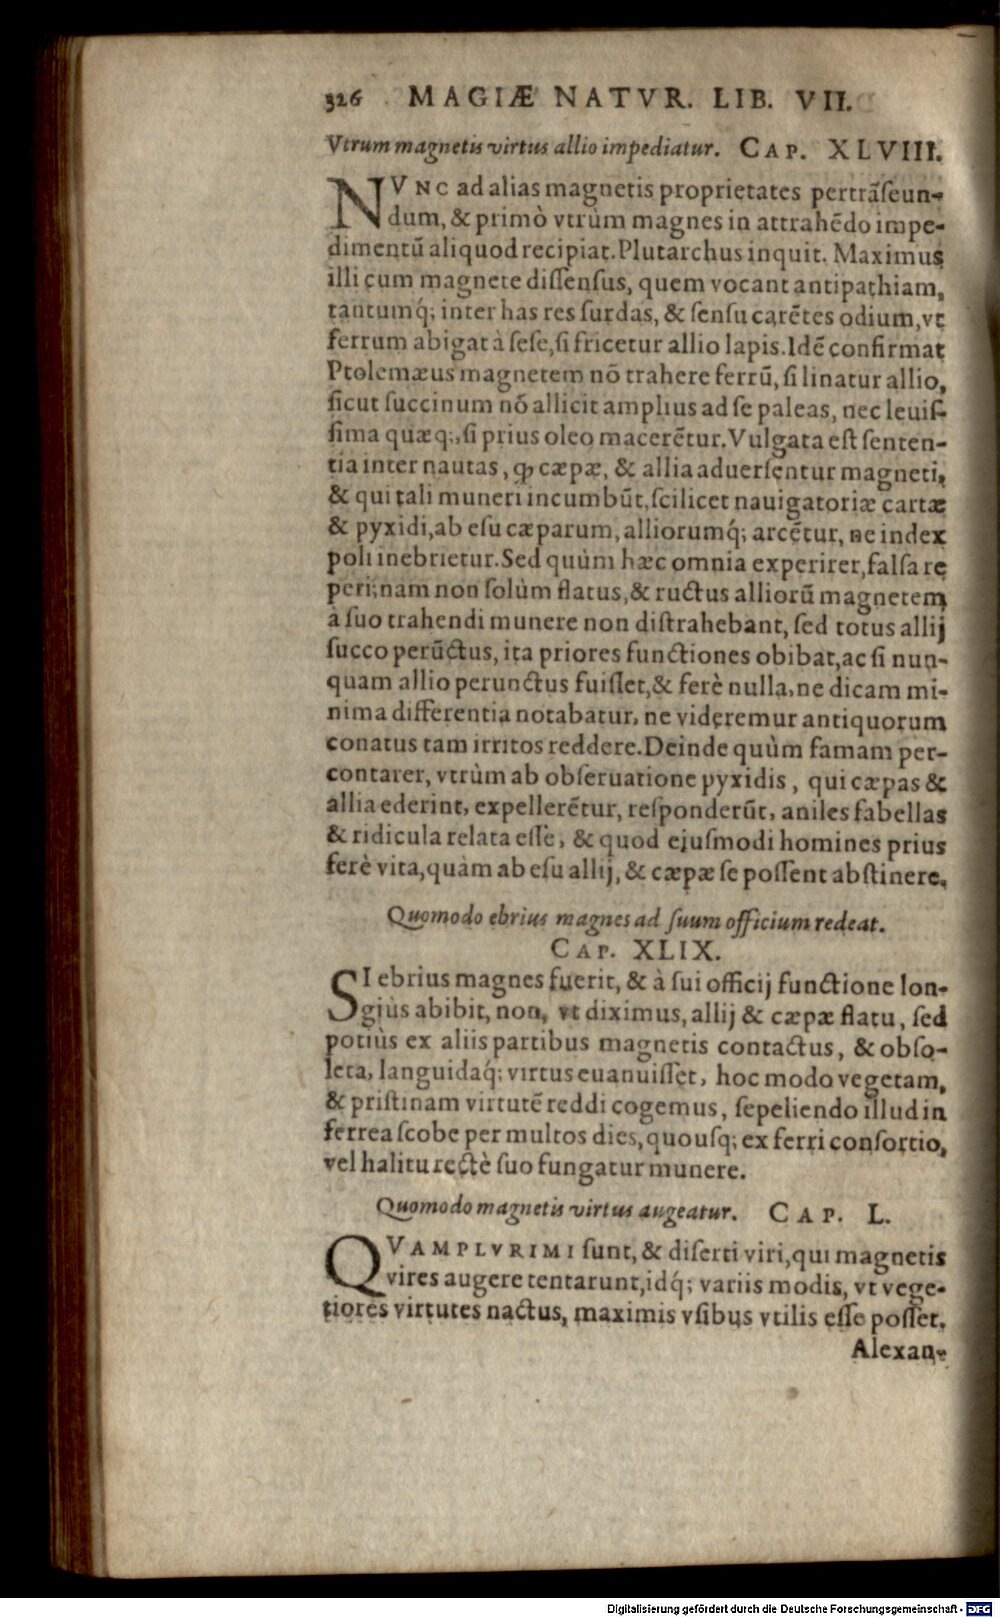 326 MAGIÆ NATVR. LIB. VII.
Vtrum magnetis virtus allio impediatur. CAP. XLVIII.
NVNC ad alias magnetis proprietates pertrāſeun-
dum, & primò vtrùm magnes in attrahēdo impe-
dimentū aliquod recipiat. Plutarchus inquit. Maximus
illi cum magnete diſſenſus, quem vocant antipathiam,
tantumq́; inter has res ſurdas, & ſenſu carētes odium, vt
ferrum abigat à ſeſe, ſi fricetur allio lapis. Idē confirmat
Ptolemæus magnetem nō trahere ferrū, ſi linatur allio,
ſicut ſuccinum nō allicit amplius ad ſe paleas, nec leuiſ-
ſima quæq;, ſi prius oleo macerētur. Vulgata eſt ſenten-
tia inter nautas, ꝙ cæpæ, & allia aduerſentur magneti,
& qui tali muneri incumbūt, ſcilicet nauigatoriæ cartæ
& pyxidi, ab eſu cæparum, alliorumq́; arcētur, ne index
poli inebrietur. Sed quùm hæc omnia experirer, falſa re
peri; nam non ſolùm flatus, & ructus alliorū magnetem
à ſuo trahendi munere non diſtrahebant, ſed totus allij
ſucco perūctus, ita priores functiones obibat, ac ſi nun-
quam allio perunctus fuiſſet, & ferè nulla, ne dicam mi-
nima differentia notabatur, ne videremur antiquorum
conatus tam irritos reddere. Deinde quùm famam per-
contarer, vtrùm ab obſeruatione pyxidis, qui cæpas &
allia ederint, expellerētur, reſponderūt, aniles fabellas
& ridicula relata eſſe, & quod ejuſmodi homines prius
ferè vita, quàm ab eſu allij, & cæpæ ſe poſſent abſtinere.
Quomodo ebrius magnes ad ſuum officium redeat.
CAP. XLIX.
SI ebrius magnes fuerit, & à ſui officij functione lon-
giùs abibit, non, vt diximus, allij & cæpæ flatu, ſed
potiùs ex aliis partibus magnetis contactus, & obſo-
leta, languidaq́; virtus euanuiſſet, hoc modo vegetam,
& priſtinam virtutē reddi cogemus, ſepeliendo illud in
ferrea ſcobe per multos dies, quouſq; ex ferri conſortio,
vel halitu rectè ſuo fungatur munere.
Quomodo magnetis virtus augeatur. CAP. L.
QVAMPLVRIMI ſunt, & diſerti viri, qui magnetis
vires augere tentarunt, idq́; variis modis, vt vege-
tiores virtutes nactus, maximis vſibus vtilis eſſe poſſet.
Alexan-
Digitalisierung gefördert durch die Deutsche Forschungsgemeinschaft - DFG